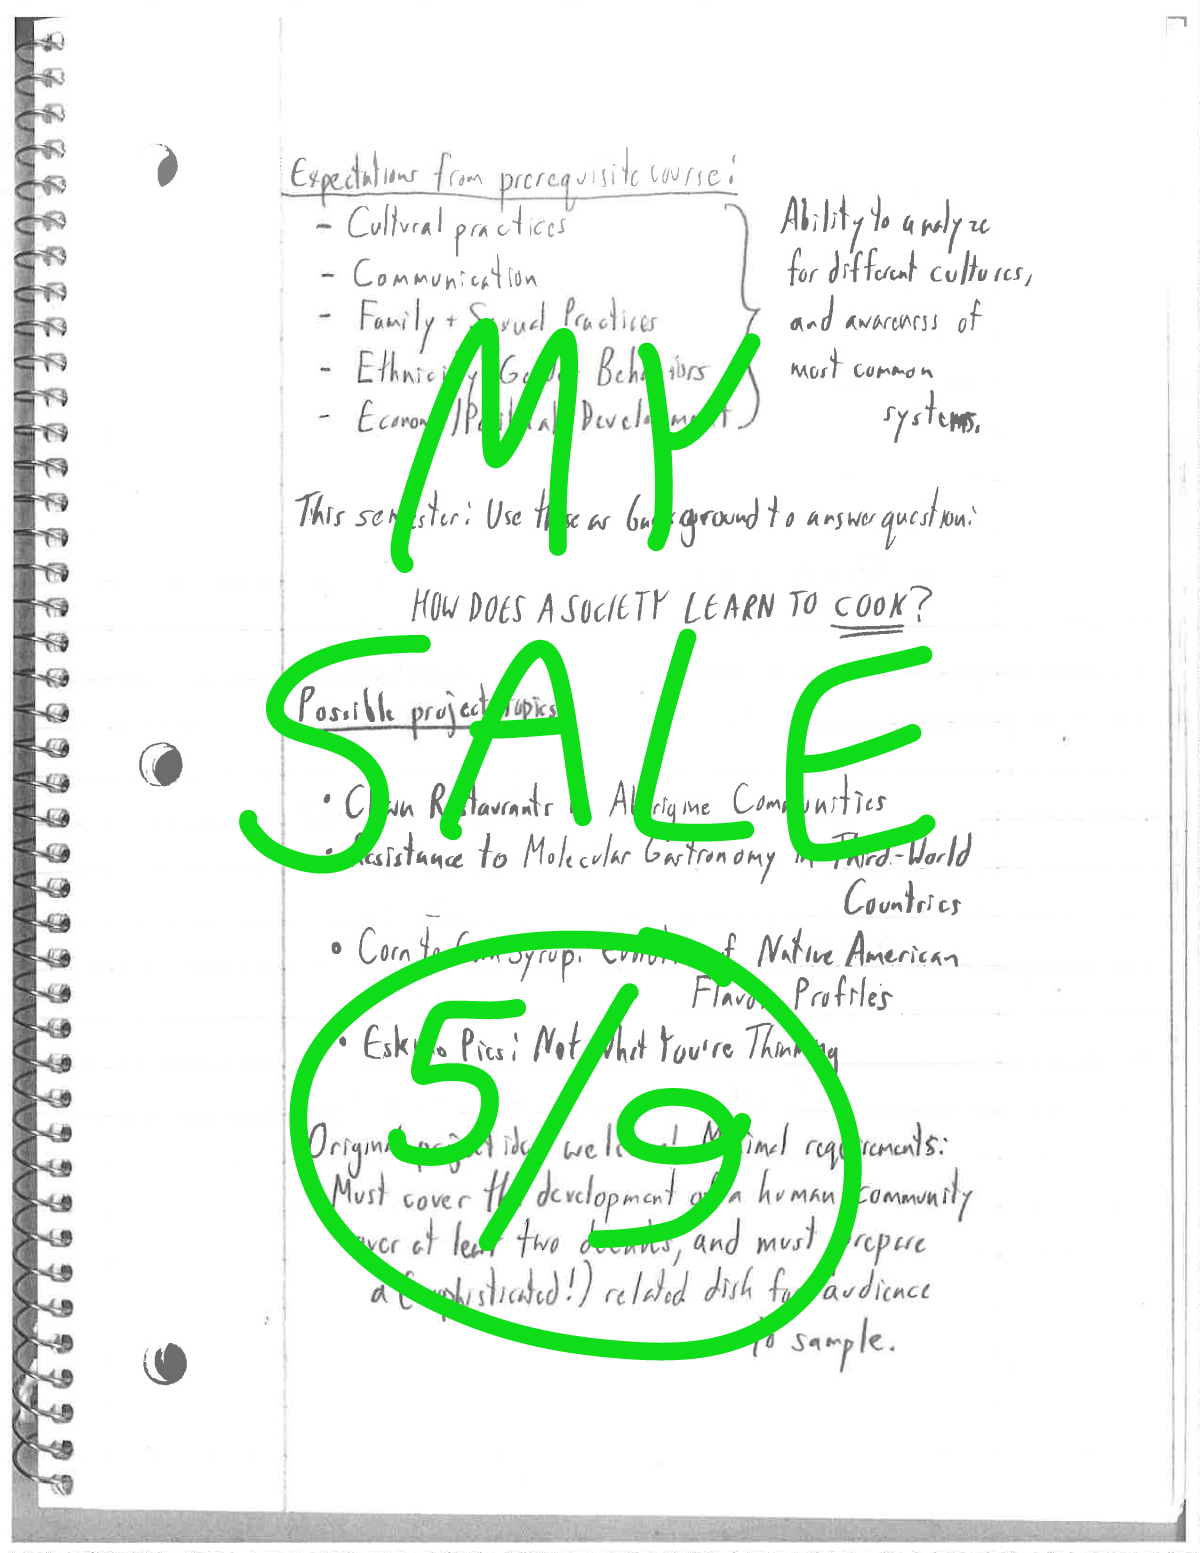 Expectations from prerequisite course:
- Cultural practices
- Communication
- Family + Sexual Practices
- Ethnicity, Gender Behaviors
- Economic/Political Development
Ability to analyze
for different cultures,
and awareness of
most common
systems.
This semester: Use these as background to answer question:
HOW DOES A SOCIETY LEARN TO COOK?
Possible project topics
• Clown Restaurants in Aborigine Communities
• Resistance to Molecular Gastronomy in Third-World
Countries
• Corn to Corn Syrup: Evolution of Native American
Flavor Profiles
• Eskimo Pies: Not What You're Thinking
Original project ideas welcome! Minimal requirements:
Must cover the development of a human community
over at least two decades, and must prepare
a (sophisticated!) related dish for audience
to sample.
MY
SALE
5/9